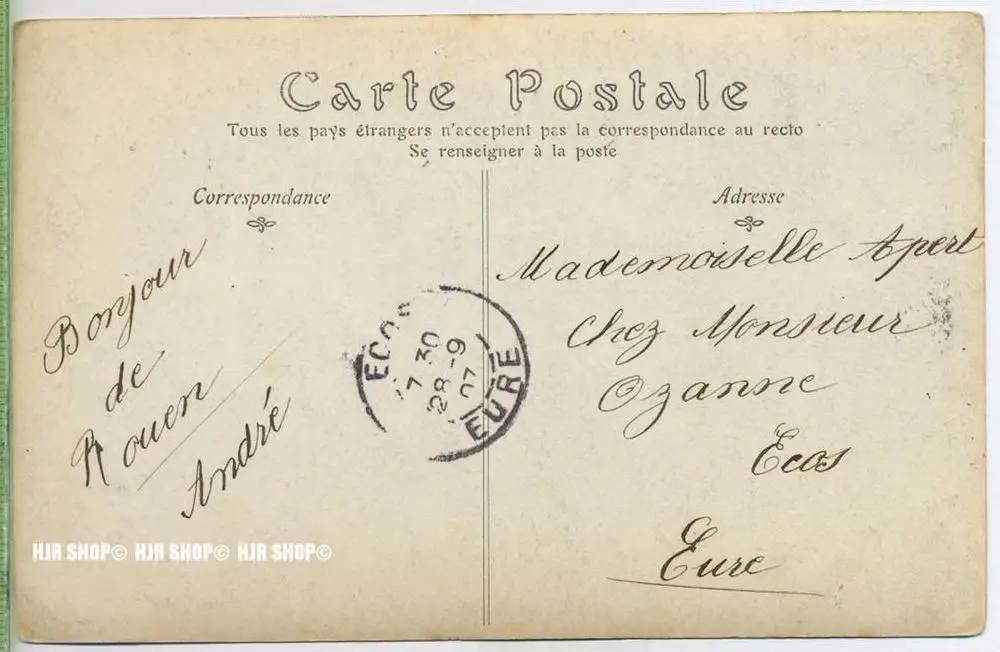 Carte Postale
Tous les pays étrangers n'acceptent pas la correspondance au recto
Se renseigner à la poste
Correspondance
Bonjour
de
Rouen
André
Adresse
Mademoiselle Apert
chez Monsieur
Ozanne
Ecos
Eure
ECOS
7 30
28 -9
07
EURE
HJR SHOP© HJR SHOP© HJR SHOP©